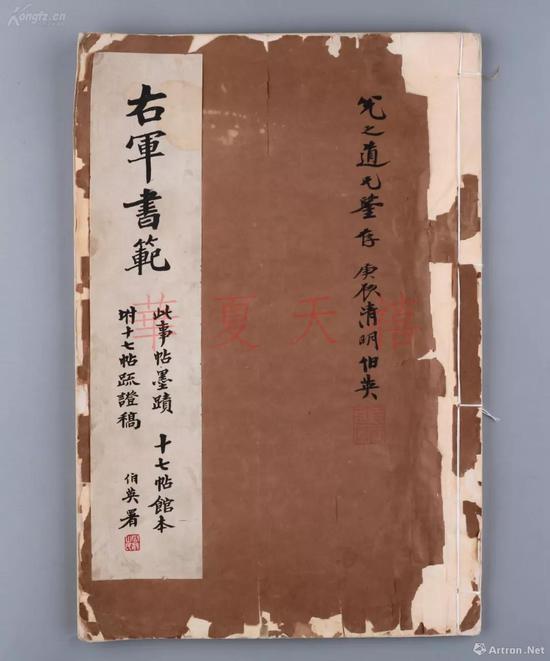 允之道兄鑒存 庚辰清明伯英
右軍書範
此事帖墨蹟 十七帖館本
坿十七帖疏證稿
伯英署
華夏天禧
Kongfz.cn
Artron.Net